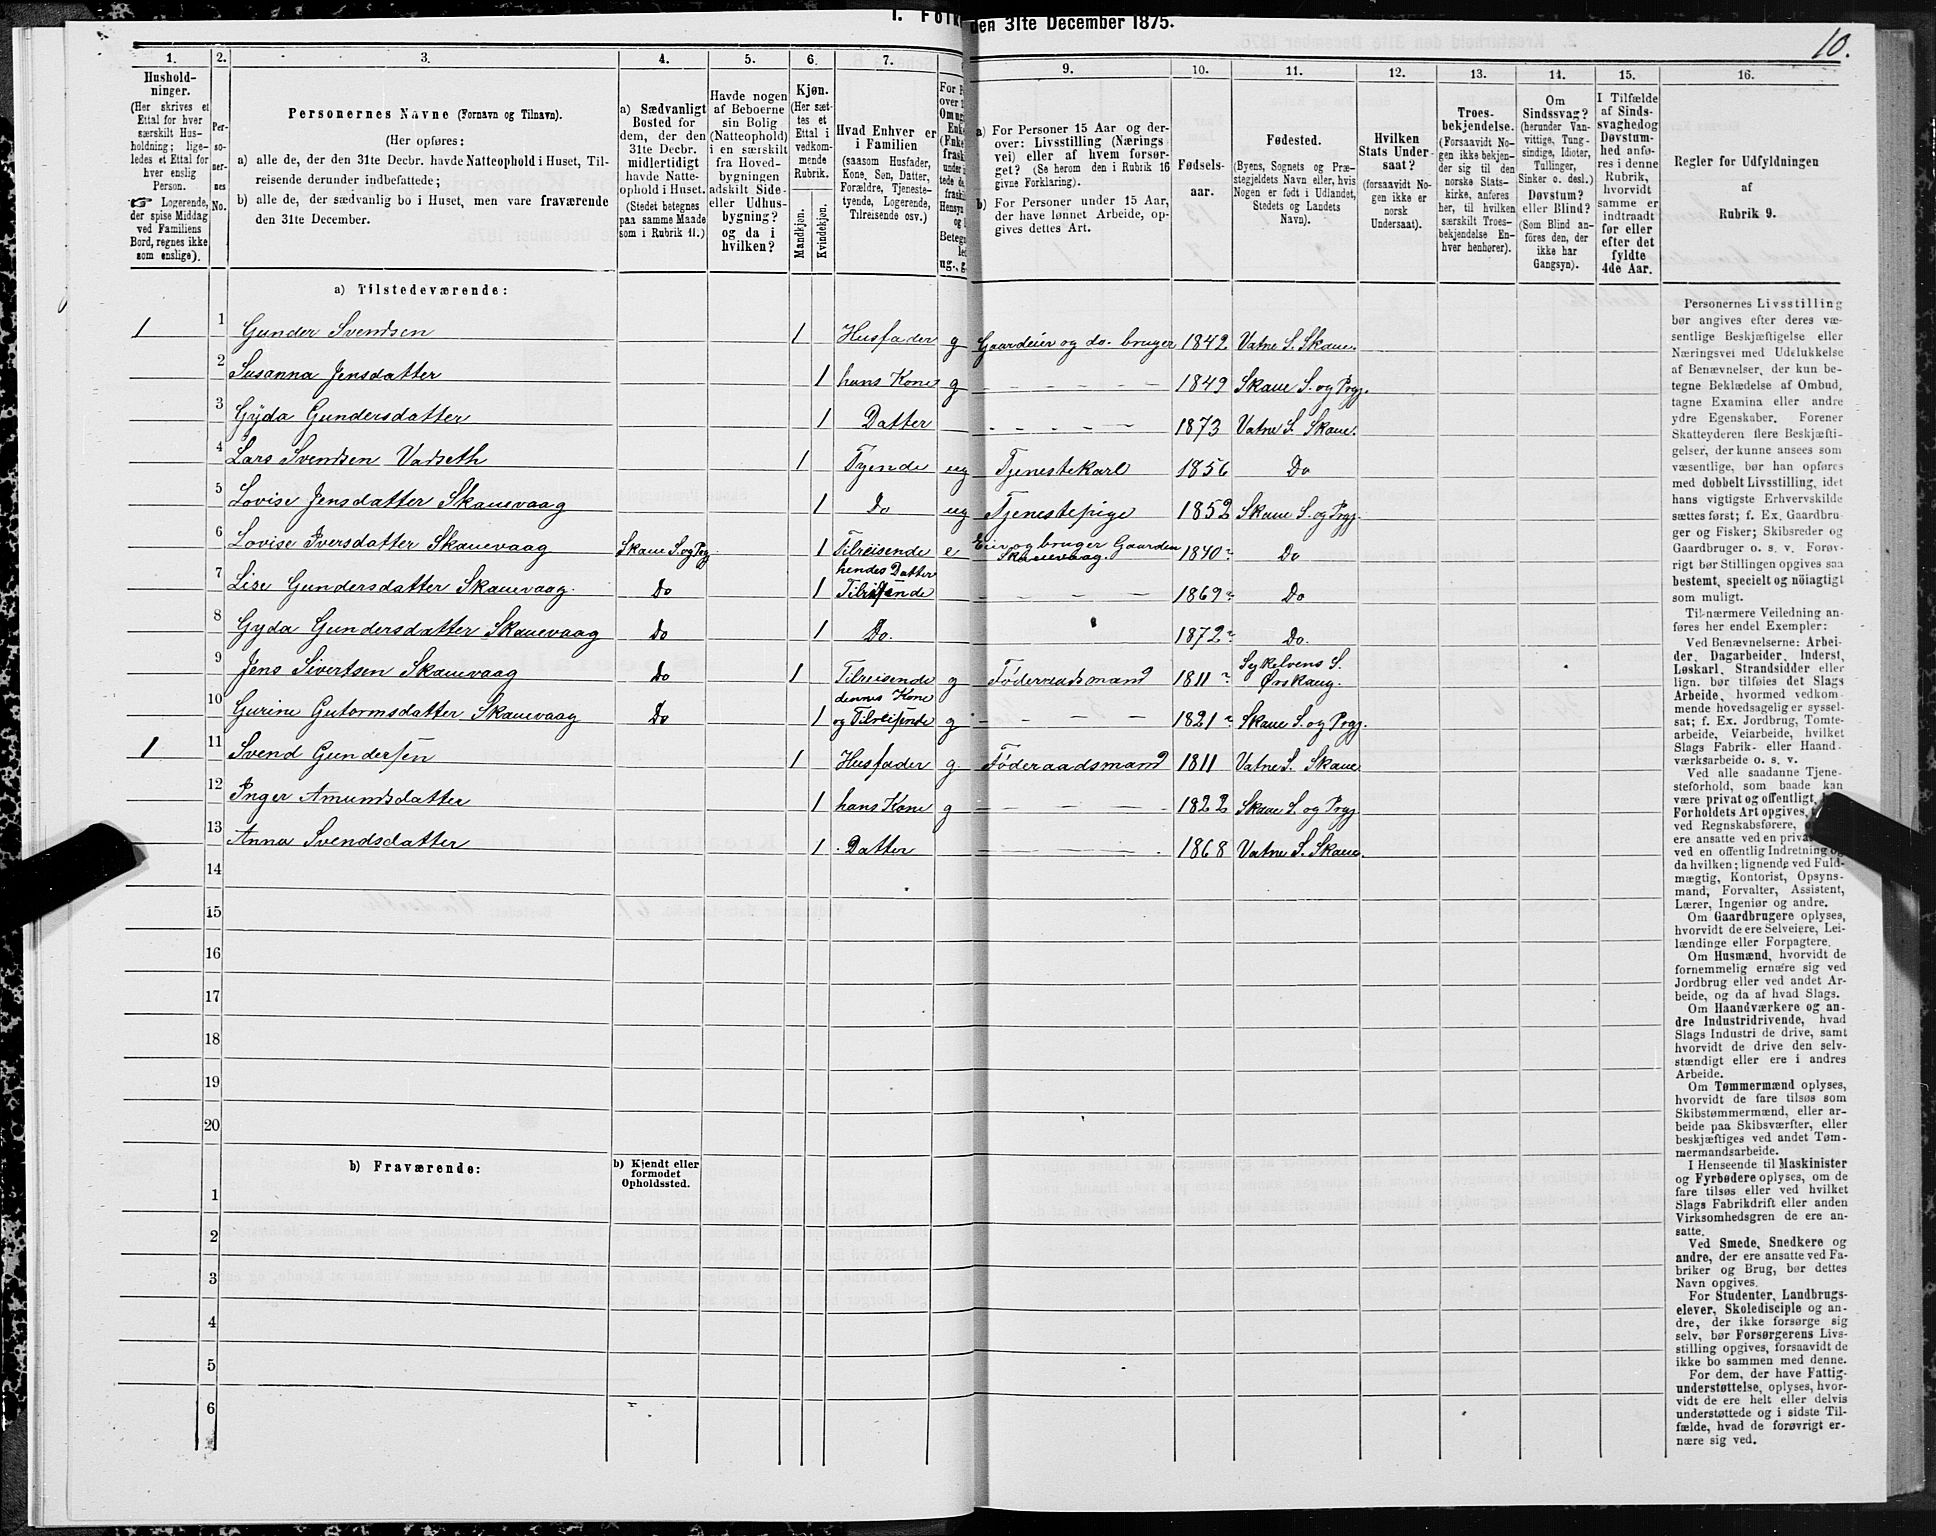 1. Folk
den 31te December 1875.
10.
1.
2.
3.
4.
5.
6.
7.
9.
10.
11.
12.
13.
14.
15.
16.
Hushold-
ninger.
(Her skrives et
Ettal for hver
særskilt Hus-
holdning; lige-
ledes et Ettal for
hver enslig
Person.
☞ Logerende,
der spise Middag
ved Familiens
Bord, regnes ikke
som enslige).
Per-
so-
ner-
nes
No.
Personernes Navne (Fornavn og Tilnavn).
(Her opføres:
a) alle de, der den 31te Decbr. havde Natteophold i Huset, Til-
reisende derunder indbefattede;
b) alle de, der sædvanlig bo i Huset, men vare fraværende
den 31te December.
a) Sædvanligt
Bosted for
dem, der den
31te Decbr.
midlertidigt
havde Natte-
ophold i Huset.
(Stedet betegnes
paa samme Maade
som i Rubrik 11.)
Havde nogen
af Beboerne
sin Bolig
(Natteophold)
i en særskilt
fra Hoved-
bygningen
adskilt Side-
eller Udhus-
bygning?
og da i
hvilken?
Kjøn.
(Her sæt-
tes et
Ettal i
vedkom-
mende
Rubrik.
Mandkjøn.
Kvindekjøn.
Hvad Enhver er
i Familien
(saasom Husfader,
Kone, Søn, Datter,
Forældre, Tjeneste-
tyende, Logerende,
Tilreisende osv.)
a) For Personer 15 Aar og der-
over: Livsstilling (Nærings
vei) eller af hvem forsør-
get? (Se herom den i Rubrik 16
givne Forklaring).
b) For Personer under 15 Aar,
der have lønnet Arbeide, op-
gives dettes Art.
Fødsels-
aar.
Fødested.
(Byens, Sognets og Præ-
stegjeldets Navn eller, hvis
Nogen er født i Udlandet,
Stedets og Landets
Navn).
Hvilken
Stats Under-
saat?
(forsaavidt No-
gen ikke er
norsk
Undersaat).
Troes-
bekjendelse.
(Forsaavidt No-
gen ikke bekjen-
der sig til den
norske Stats-
kirke, anføres
her, til hvilken
særskilt Troes-
bekjendelse En-
hver henhører).
Om
Sindssvag?
(herunder Van-
vittige, Tung-
sindige, Idioter,
Tullinger,
Sinker o. desl.)
Døvstum?
eller Blind?
(Som Blind an-
føres den, der
ikke har
Gangsyn).
I Tilfælde
af Sinds-
svaghed og
Døvstum-
hed anfø-
res i denne
Rubrik,
hvorvidt
samme er
indtraadt
før eller
efter det
fyldte
4de Aar.
Regler for Udfyldningen
af
Rubrik 9.
a) Tilstedeværende:
1 1 Gunder Svendsen 1 Husfader g Gaardeier og do. bruger 1842 Vatne S. Skaue.
2 Susanna Jensdatter 1 hans Kone g 1849 Skaue S. og Prgj.
3 Gyda Gundersdatter 1 Datter 1873 Vatne S. Skaue.
4 Lars Svendsen Vadseth 1 Tyende ug Tjenestekarl 1856 Do
5 Lovise Jensdatter Skauevaag 1 Do ug Tjenestepige 1852 Skaue S. og Prgj.
6 Lovise Iversdatter Skauevaag Skaue S. og Prg. 1 Tilreisende e Eier og bruger Gaarden Skauevaag. 1840 Do
7 Lise Gundersdatter Skauevaag. Do 1 hendes Datter Tilreisende 1869 Do
8 Gyda Gundersdatter Skauevaag Do 1 Do. 1872 Do.
9 Jens Sivertsen Skauevaag Do 1 Tilreisende g Føderaadsmand 1811 Sykelvens S. Ørskaug.
10 Gurine Gutormsdatter Skauevaag Do 1 dennes Kone og Tilreisende g 1821 Skaue S. og Prgj.
1 11 Svend Gundersen 1 Husfader g Føderaadsmand 1811 Vatne S. Skaue
12 Inger Amundsdatter 1 hans Kone g 1822 Skaue S. og Prgj.
13 Anna Svendsdatter 1 Datter 1868 Vatne S. Skaue.
14
15
16
17
18
19
20
b) Fraværende:
b) Kjendt eller
formodet
Opholdssted.
1
2
3
4
5
6
Personernes Livsstilling
bør angives efter deres væ-
sentlige Beskjæftigelse eller
Næringsvei med Udelukkelse
af Benævnelser, der kun be-
tegne Beklædelse af Ombud,
tagne Examina eller andre
ydre Egenskaber. Forener
Skatteyderen flere Beskjæfti-
gelser, der kunne ansees som
væsentlige, bør han opføres
med dobbelt Livsstilling, idet
hans vigtigste Erhvervskilde
sættes først; f. Ex. Gaardbru-
ger og Fisker; Skibsreder og
Gaardbruger o. s. v. Forøv-
rigt bør Stillingen opgives saa
bestemt, specielt og nöiagtigt
som muligt.
Til nærmere Veiledning an-
føres her endel Exempler:
Ved Benævnelserne: Arbei-
der, Dagarbeider, Inderst,
Løskarl, Strandsidder eller
lign. bør tilføies det Slags
Arbeide, hvormed vedkom-
mende hovedsagelig er syssel-
sat; f. Ex. Jordbrug, Tomte-
arbeide, Veiarbeide, hvilket
Slags Fabrik- eller Haand-
værksarbeide o. s. v.
Ved alle saadanne Tjene-
steforhold, som baade kan
være privat og offentligt,
Forholdets Art opgives,
ved Regnskabsførere,
ere ansatte ved en priva
ved en offentlig Indretning og
da hvilken; lignende ved Fuld-
mægtig, Kontorist, Opsyns-
mand, Forvalter, Assistent,
Lærer, Ingeniør og andre.
Om Gaardbrugere oplyses,
hvorvidt de ere Selveiere, Lei-
lændinge eller Forpagtere.
Om Husmænd, hvorvidt de
fornemmelig ernære sig ved
Jordbrug eller ved andet Ar-
beide, og da af hvad Slags.
Om Haandværkere og an-
dre Industridrivende, hvad
Slags Industri de drive, samt
hvorvidt de drive den selv-
stændigt eller ere i andres
Arbeide.
Om Tømmermænd oplyses,
hvorvidt de fare tilsøs som
Skibstømmermænd, eller ar-
beide paa Skibsværfter, eller
beskjæftiges ved andet Tøm-
mermandsarbeide.
I Henseende til Maskinister
og Fyrbødere oplyses, om de
fare tilsøs eller ved hvilket
Slags Fabrikdrift eller anden
Virksomhedsgren de ere an-
satte.
Ved Smede, Snedkere og
andre, der ere ansatte ved Fa-
briker og Brug, bør dettes
Navn opgives.
For Studenter, Landbrugs-
elever, Skoledisciple og an-
dre, der ikke forsørge sig
selv, bør Forsørgerens Livs-
stilling opgives, forsaavidt de
ikke bo sammen med denne.
For dem, der have Fattig-
understøttelse, oplyses, hvor-
vidt de ere helt eller delvis
understøttede og i sidste Til-
fælde, hvad de forøvrigt er-
nære sig ved.